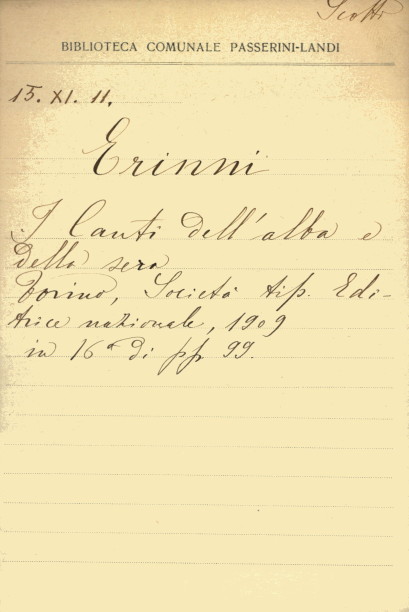 Scotti
BIBLIOTECA COMUNALE PASSERINI-LANDI
15. XI. 11.
Erinni
I Canti dell'alba e
della sera
Torino, Società tip. Edi-
trice nazionale, 1909
in 16° di pp 99.